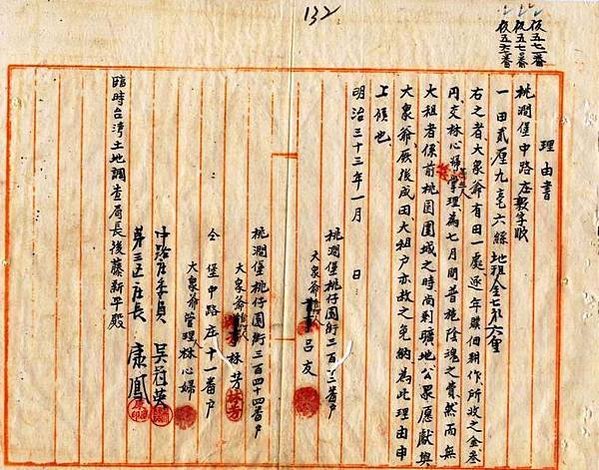 132
仮五七一番
仮五七〇番
仮五六二番
理由書
桃澗堡中路庄
一田貳厘九毫六絲 地租金七
右之者大眾爺有田一處逐年贌佃耕作所收之金叁
円交林心婦等三人掌理為七月間普施陰魂之費然而無
大租者係前桃園圍城之時尚剩曠地公眾應献與
大眾爺厥後成田大租户亦赦之免納為此理由申
上候也
明治三十三年一月 日
桃澗堡桃仔園街二百〇二番户
大眾爺 呂友
桃澗堡桃仔園街三百四十四番户
大眾爺 林芳
仝堡中路庄十一番户
大眾爺管理人林心婦
中路庄委員 吳冠英
第三区庄長 康鳳
臨時台湾土地調查局長後藤新平殿